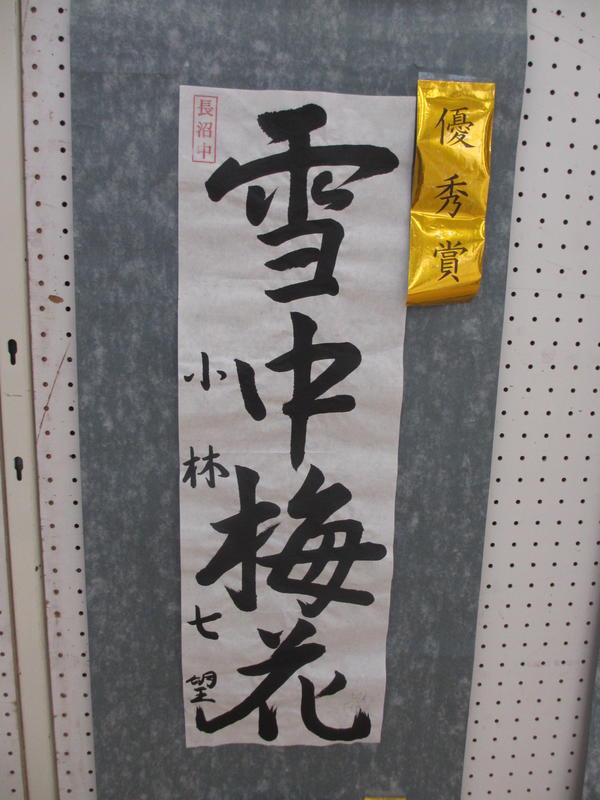 優秀賞
長沼中
雪中梅花
小林七望